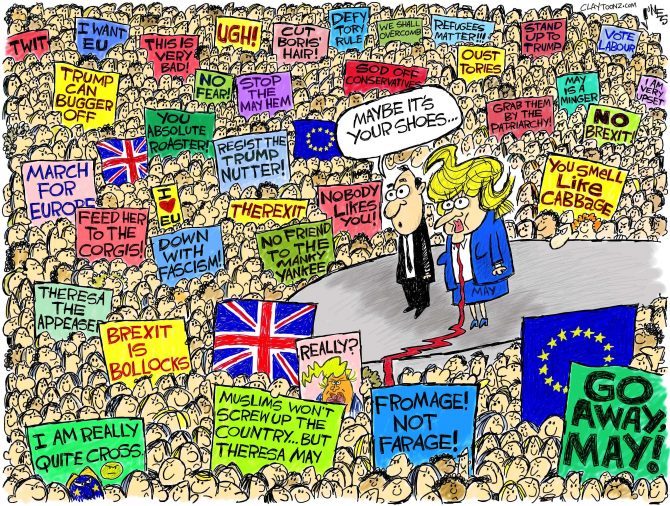 CLAYTOONZ.COM
TWIT
I WANT
EU
THIS IS
VERY
BAD!
UGH!
CUT
BORIS'
HAIR!
DEFY
TORY
RULE
WE SHALL
OVERCOMB
REFUGEES
MATTER!!!
STAND
UP TO
TRUMP!
VOTE
LABOUR
TRUMP
CAN
BUGGER
OFF
NO
FEAR!
STOP
THE
MAYHEM
SOD OFF
CONSERVATIVES
OUST
TORIES
MAY IS
A
MINGER
I AM
VERY
UPSET
YOU
ABSOLUTE
ROASTER!
RESIST THE
TRUMP
NUTTER!
MAYBE IT'S
YOUR SHOES...
GRAB THEM
BY THE
PATRIARCHY!
NO
BREXIT!
MARCH
FOR
EUROPE
I
EU
THEREXIT
NOBODY
LIKES
YOU!
YOU SMELL
LIKE
CABBAGE
FEED HER
TO THE
CORGIS!
DOWN
WITH
FASCISM!
NO FRIEND
TO THE
MANKY
YANKEE
MAY
THERESA
THE
APPEASER
BREXIT
IS
BOLLOCKS
REALLY?
I AM REALLY
QUITE CROSS.
MUSLIMS WON'T
SCREW UP THE
COUNTRY...BUT
THERESA MAY
FROMAGE!
NOT
FARAGE!
GO
AWAY,
MAY!